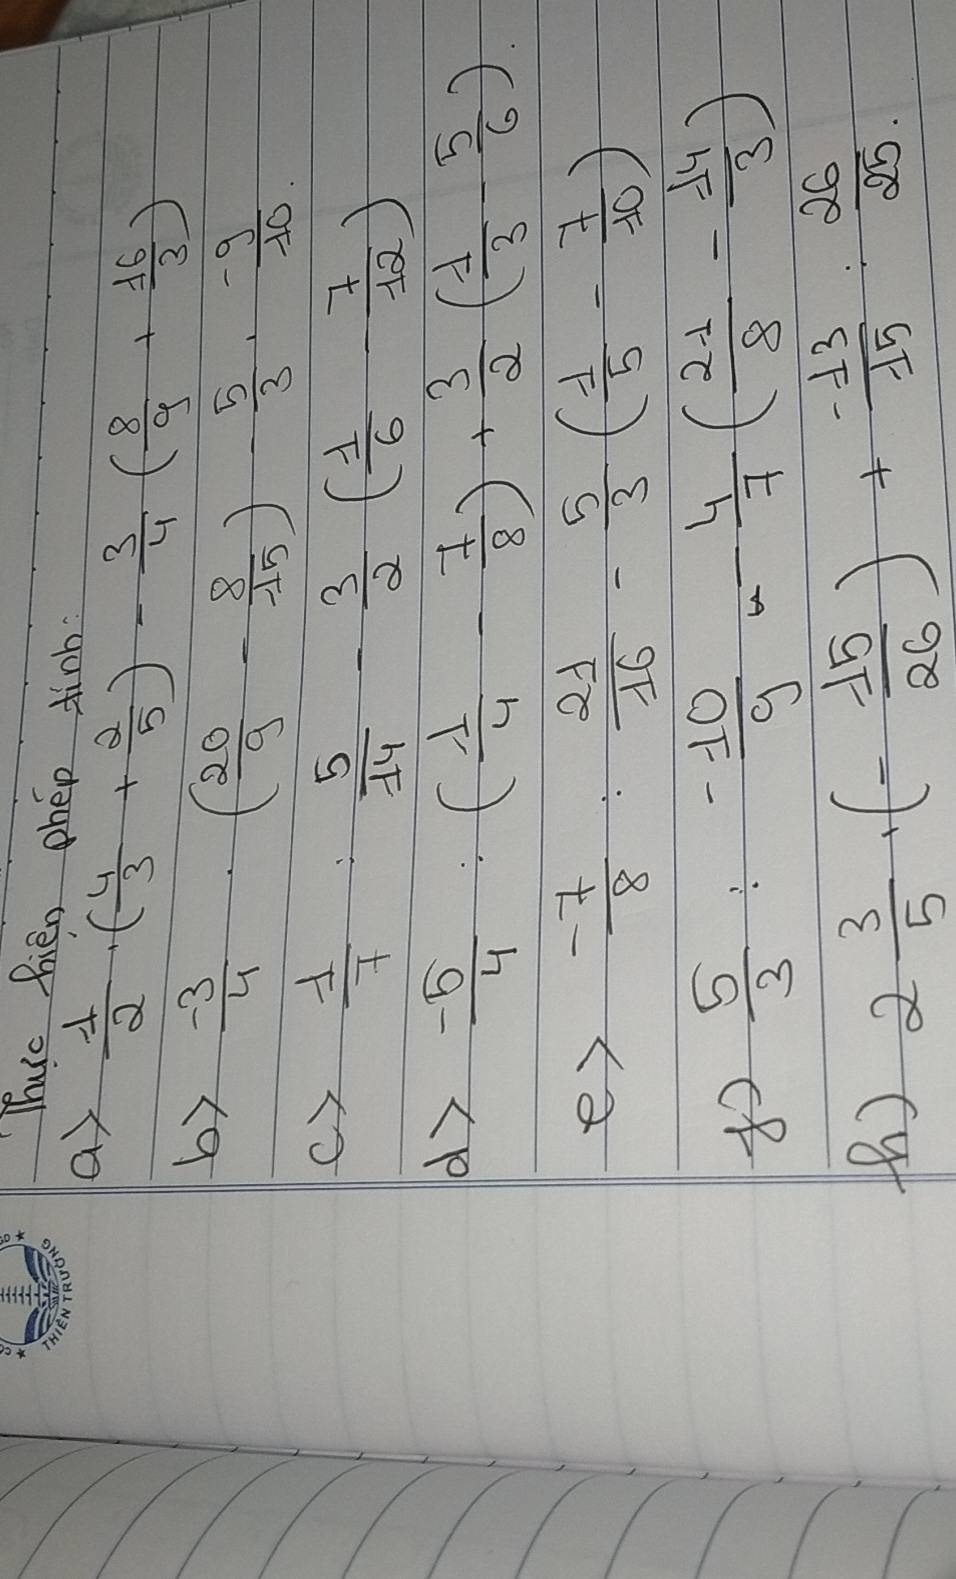 Thực hiện phép tính:
a> 1/2 . (4/3 + 2/5) - 3/4 (8/9 + 16/3)
b> -3/4 . (20/9 - 8/15) - 5/3 . -9/10.
c> 1/7 : 5/14 - 3/2 (1/6 - 7/12)
d> -5/4 : (1/4 - 7/8) + 3/2 (1/3 - 5/6).
e> -7/8 : 21/16 - 5/3 (1/5 - 7/10)
g) 5/3 : -10/9 - 4/7 (21/8 - 14/3)
h) 2 3/5 . (- 15/26) + -13/15 : 26/25.
THIÊN TRƯỜNG